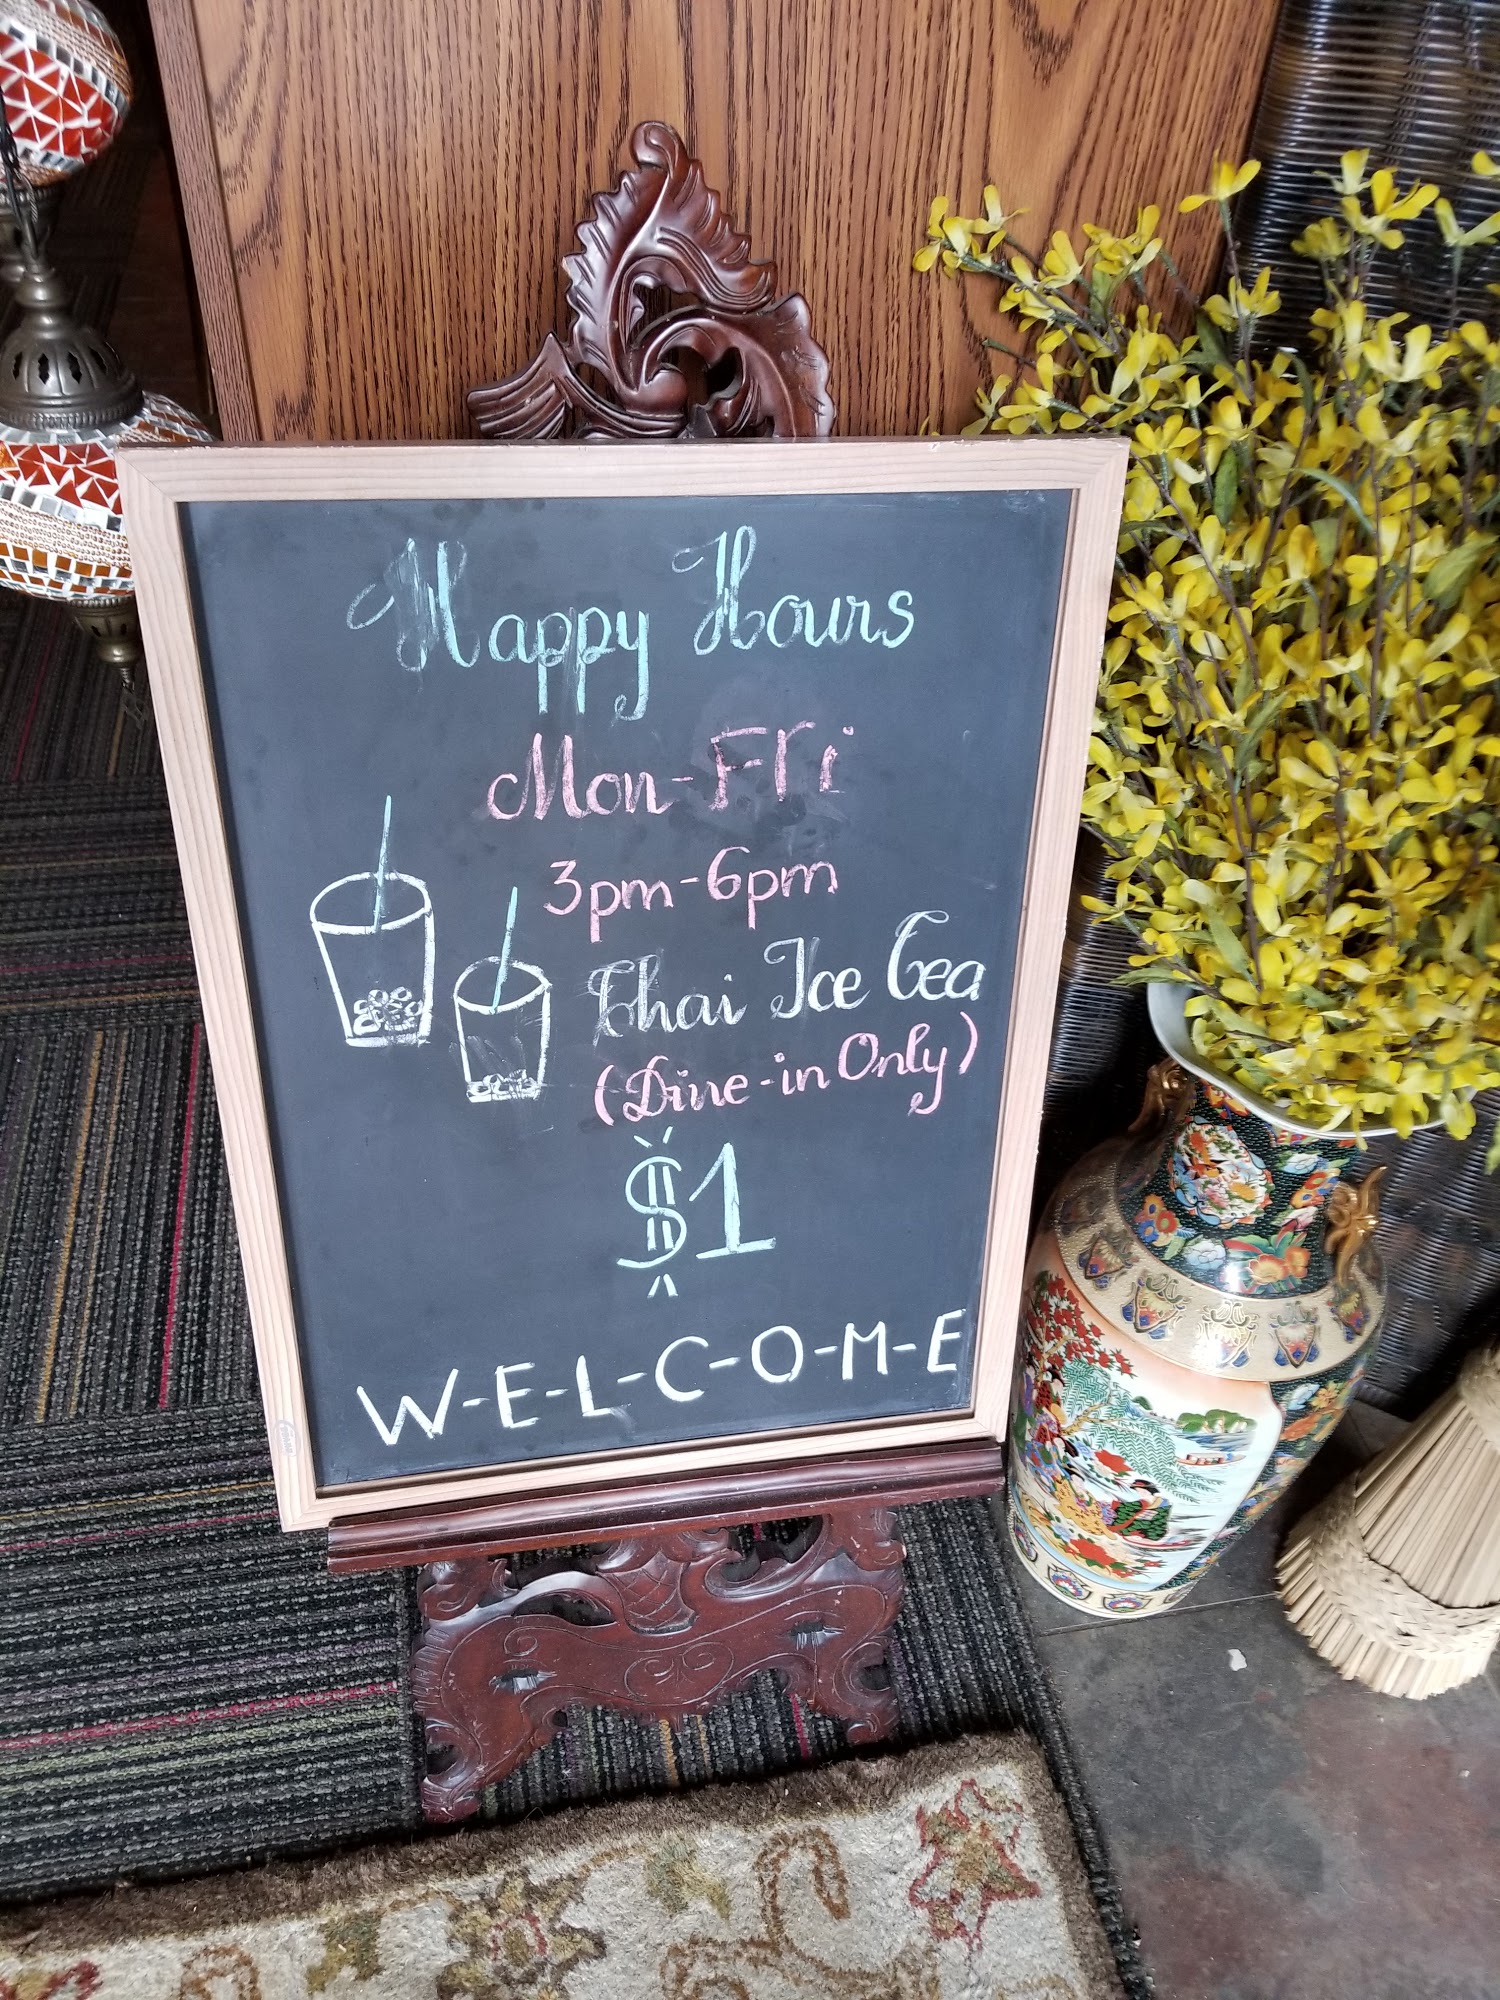 Happy Hours
Mon-Fri
3pm-6pm
Thai Ice Tea
(Dine-in Only)
$1
W-E-L-C-O-M-E